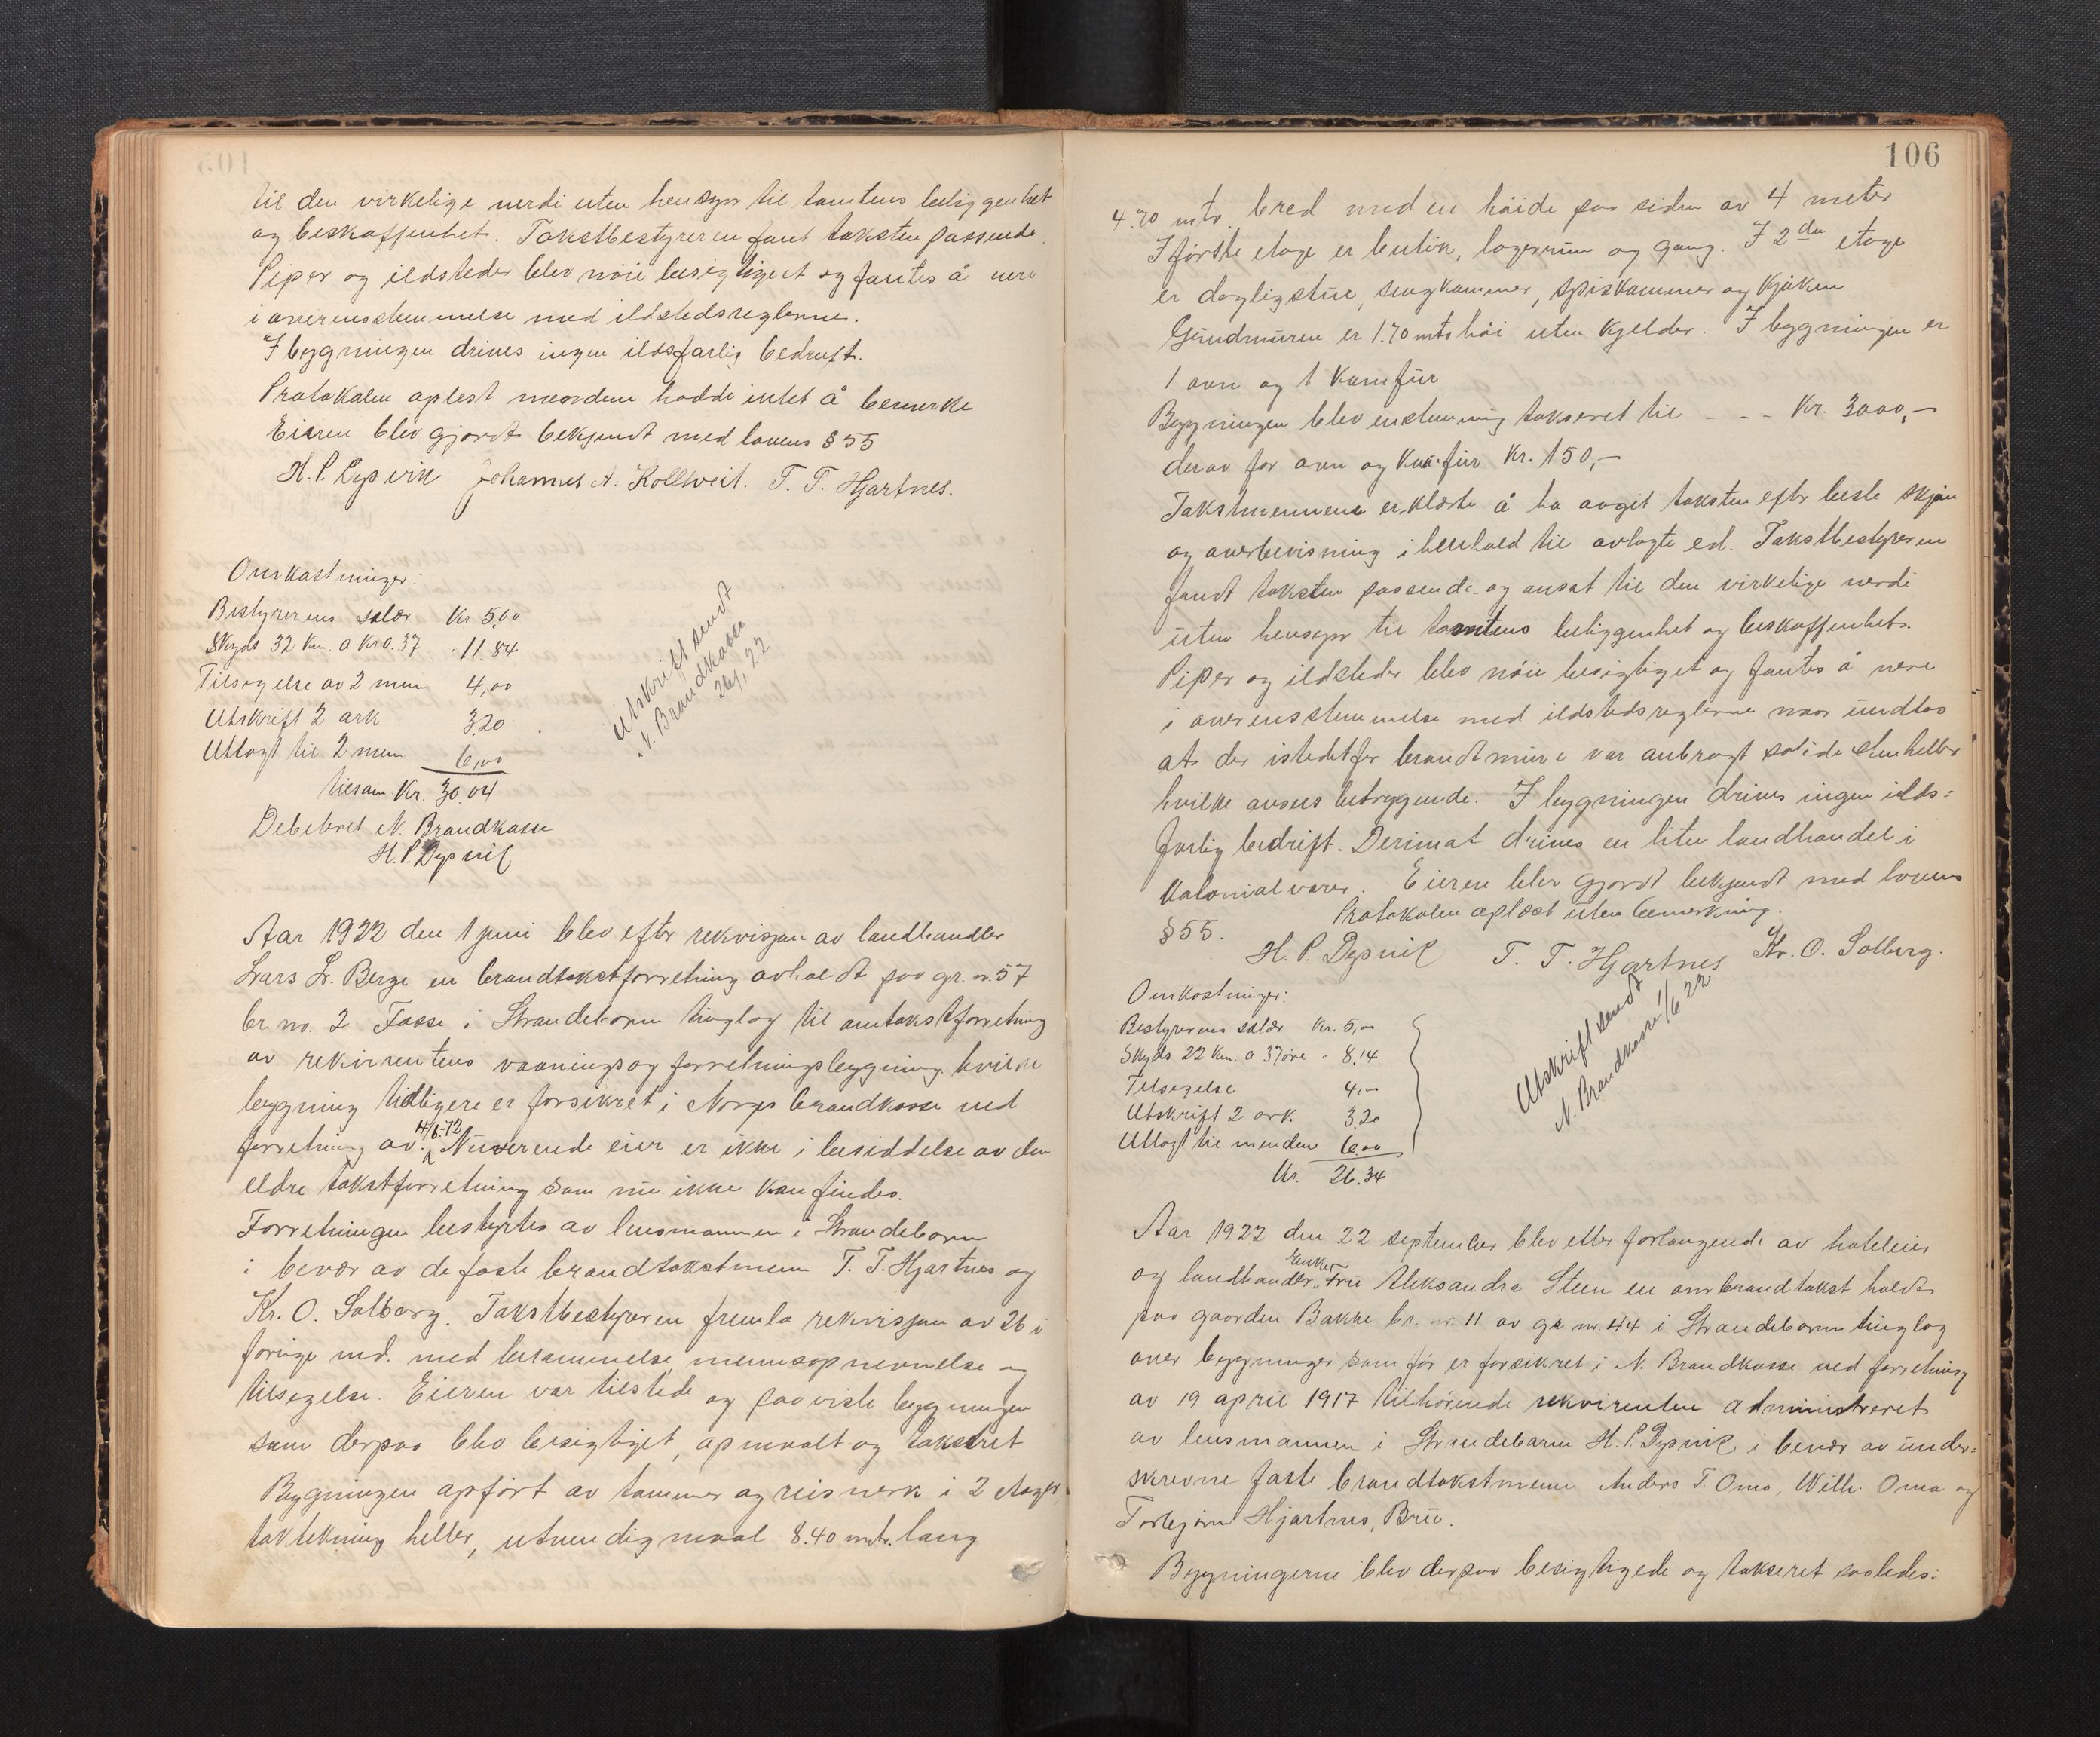 til den virkelige verdi uten hensyn til tomtens beliggenhet
og beskaffenhet. Takstbestyreren fant taksten passende.
Piper og ildsteder blev nöie besigtiget og fantes å vere
i overensstemmelse med ildstedsreglerne.
I bygningen drives ingen ildsfarlig bedrift.
Protokolen oplest mændene hadde intet å bemerke
Eieren blev gjordt bekjendt med lovens § 55
H. P. Dysvik Johannes A. Kolltveit. T. T. Hjartnes.
Omkostninger:
Bestyrerens salær Kr 5,00
Skyds 32 km. a kr 0.37 " 11.84
Tilsigelse av 2 menn 4,00
Utskrift 2 ark 3.20
Utlagt til 2 menn 6,00
tilsam. Kr. 30.04
Debiteret N. Brandkasse
H. P. Dysvik
Utskrift sendt
N. Brandkasse
26/1 22
Aar 1922 den 1 juni blev efter rekvisjon av landhandler
Lars L. Berge en brandtakstforretning avholdt paa gr. nr. 57
br. no. 2 Fosse i Strandebarm tinglag til omtakstforretning
av rekvirentens vaanings og forretningsbygning, hvilke
bygning tidligere er forsikret i Norges brandkasse ved
forretning av 4/6-12 Nuverende eier er ikke i besiddelse av den
eldre takstforretning som nu ikke kan findes.
Forretningen bestyrtes av lensmannen i Strandebarm
i bevær av de faste brandtakstmenn T. T. Hjartnes og
Kr. O. Solberg. Takstbestyreren fremla rekvisjon av 26 i
forrige md. med berammelse, mennsopnevnelse og
tilsigelse. Eieren var tilstede og paaviste bygningen
som derpaa blev besigtiget, opmaalt og taksert
Bygningen opfört av tømmer og reisverk i 2 etager,
taktekning heller, utvendig maal 8.40 mtr. lang
106
4.70 mtr. bred med en höide paa siden av 4 meter
I förste etage er butik, lagerrum og gang. I 2den etage
er dagligstue, sengkammer, spiskammer og kjøken
Grundmuren er 1.70 mtr höi uten kjelder. I bygningen er
1 ovn og 1 Komfur
Bygningen blev enstemmig taksert til - - - Kr. 3000,-
derav for ovn og komfur Kr. 150,-
Takstmennene erklærte å ha avgit taksten efter beste skjøn
og overbevisning i henhold til avlagte ed. Takstbestyreren
fandt taksten passende og ansat til den virkelige verdi
uten hensyn til tomtens beliggenhet og beskaffenhet.
Piper og ildsteder blev nöie besigtiget og fantes å vere
i overensstemmelse med ildstedsreglerne naar undtas
at der istedetfor brandtmure var anbragt solide stenheller
hvilke ansees betryggende. I bygningen drives ingen ilds-
farlig bedrift. Derimot drives en liten landhandel i
Kolonialvarer. Eieren blev gjordt bekjendt med lovens
§ 55. Protokolen oplæst uten bemerkning.
H. P. Dysvik T. T. Hjartnes Kr. O. Solberg.
Omkostninger:
Bestyrerens salær Kr. 5,00
Skyds 22 Km. a 37 øre " 8.14
Tilsigelse 4,00
Utskrift 2 ark. 3.20
Utlagt til mendene 6.00
Kr. 26.34
Utskrift sendt
N. Brandkasse 1/6 22
Aar 1922 den 22 september blev etter forlangende av hoteleier
og landhandler Enke Fru Aleksandra Steen en ombrandtakst holdt
paa gaarden Bakke br. nr. 11 av gr nr. 44 i Strandebarm tinglag
over bygninger som før er forsikret i N. Brandkasse ved forretning
av 19 april 1917 tilhörende rekvirenten administreret
av lensmannen i Strandebarm H. P. Dysvik i bevær av under-
skrevne faste brandtakstmenn Anders T. Oma, Willh. Oma og
Torbjørn Hjartnes, Bru.
Bygningerne blev derpaa besigtigede og takseret saaledes: